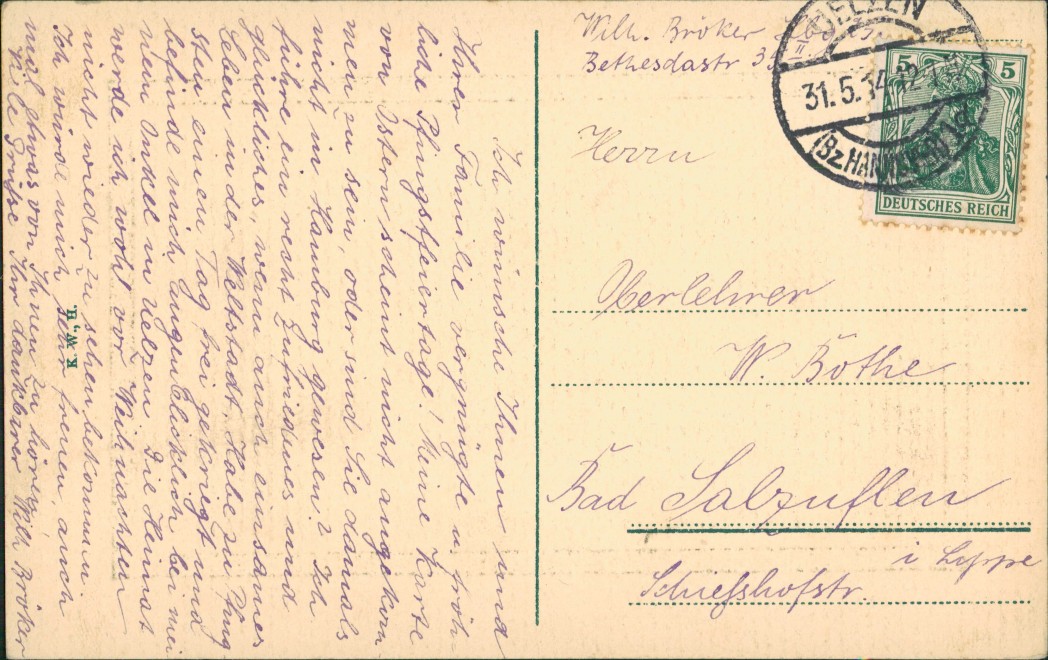 Ich wünsche Ihnen und
Ihrer Familie vergnügte u. fröh-
liche Pfingstfeiertage! Meine Karte
von Ostern scheint nicht angekom-
men zu sein, oder sind Sie damals
nicht in Hamburg gewesen? Ich
führe ein recht zufriedenes und
glückliches, wenn auch einsames
Leben in der Weltstadt. Habe zu Pfing
sten einen Tag frei gekriegt und
befinde mich augenblicklich bei mei
nem Onkel in Uelzen. Die Heimat
werde ich wohl vor Weihnachten
nicht wieder zu sehen bekommen.
Ich würde mich sehr freuen, auch
mal etwas von Ihnen zu hören.
Viele Grüße Ihr dankbarer Wilh Bröker
K. W., H.
Wilh. Bröker
Bethesdastr 33
UELZEN
31.5.14.12-1
(Bz. HANNOVER)
5 5
DEUTSCHES REICH
Herrn
Oberlehrer
W. Böthe
Bad Salzuflen
i Lyppe
Schießhofstr.